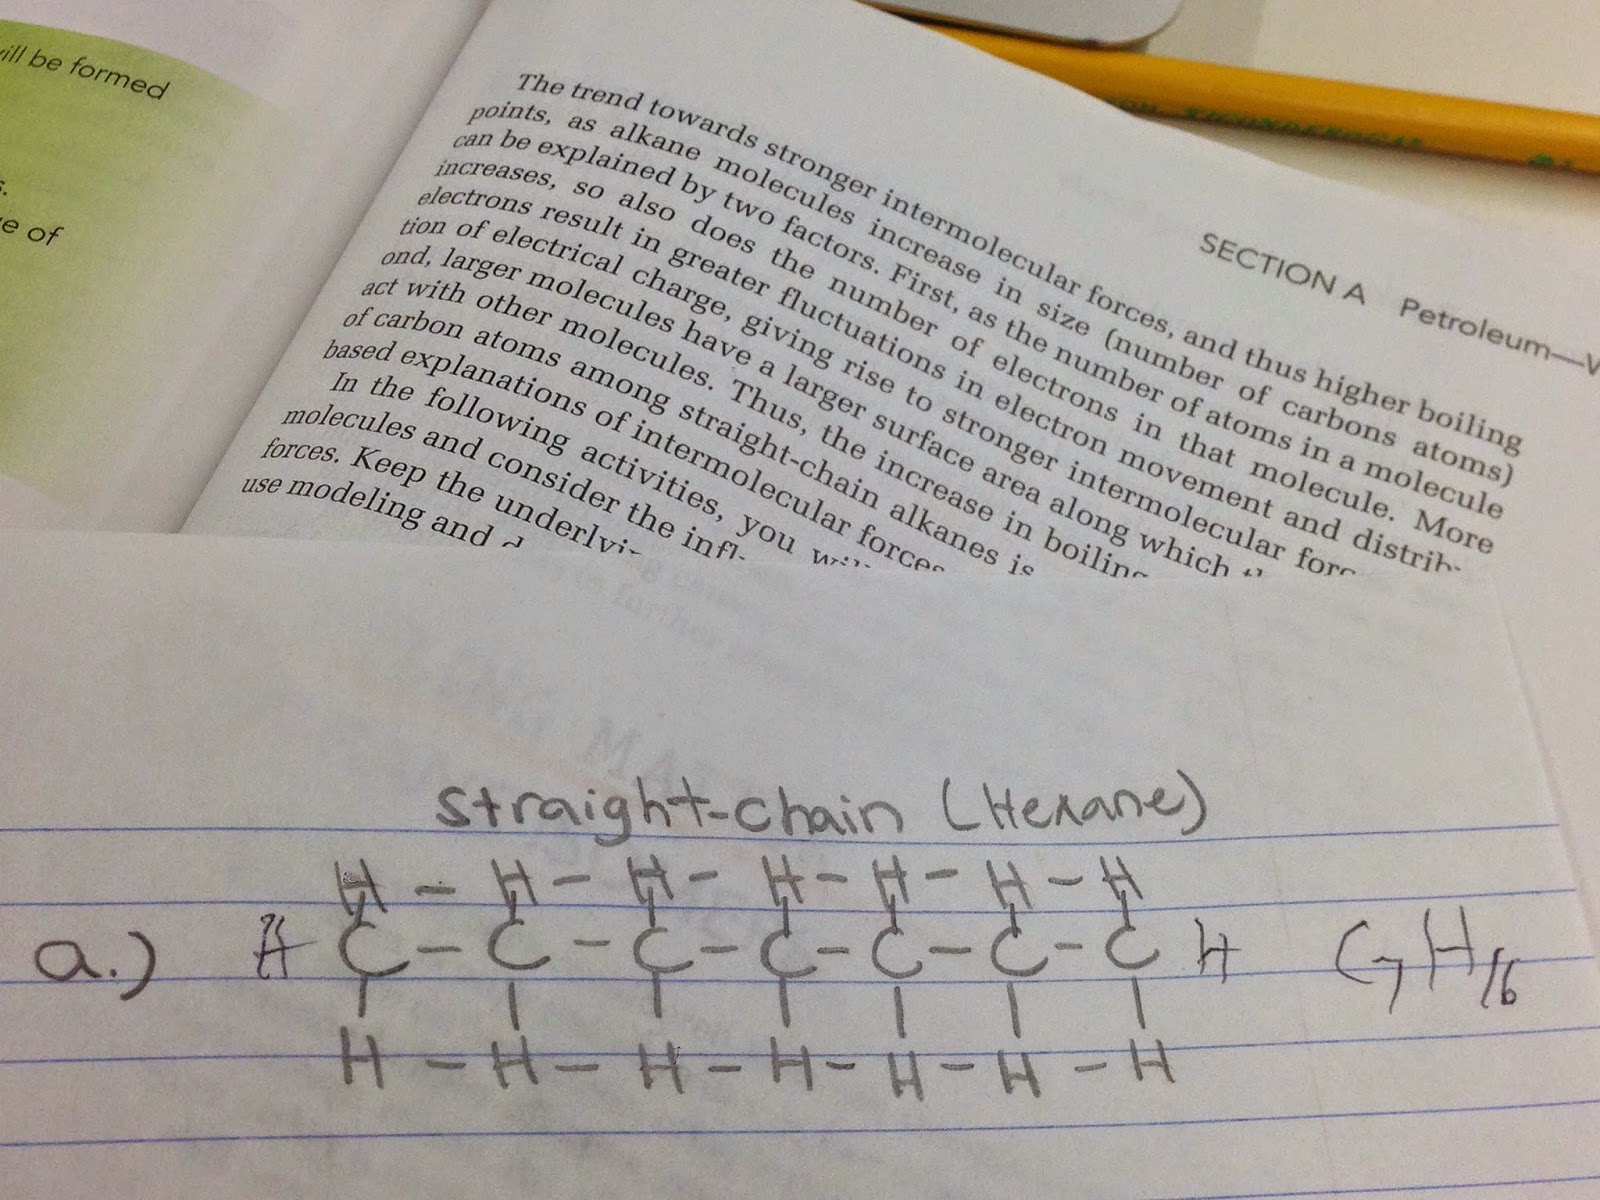 ill be formed
e of
The trend towards stronger intermolecular forces, and thus higher boiling
points, as alkane molecules increase in size (number of carbons atoms)
can be explained by two factors. First, as the number of atoms in a molecule
increases, so also does the number of electrons in that molecule. More
electrons result in greater fluctuations in electron movement and distrib-
tion of electrical charge, giving rise to stronger intermolecular forc
ond, larger molecules have a larger surface area along which th
act with other molecules. Thus, the increase in boiling
of carbon atoms among straight-chain alkanes is
based explanations of intermolecular forces
In the following activities, you will
molecules and consider the infl
forces. Keep the underlyi
use modeling and d
SECTION A Petroleum—
straight-chain (Hexane)
H - H - H - H - H - H - H
a.) H C - C - C - C - C - C - C H C7H16
H - H - H - H - H - H - H